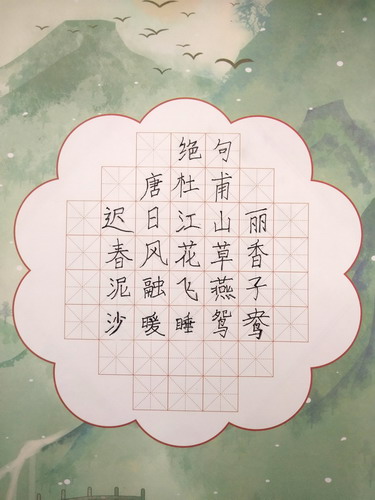 绝句
唐杜甫
迟日江山丽
春风花草香
泥融飞燕子
沙暖睡鸳鸯